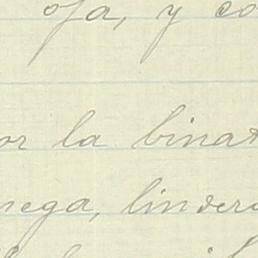 oja, y co
or la binat
nega, lindero